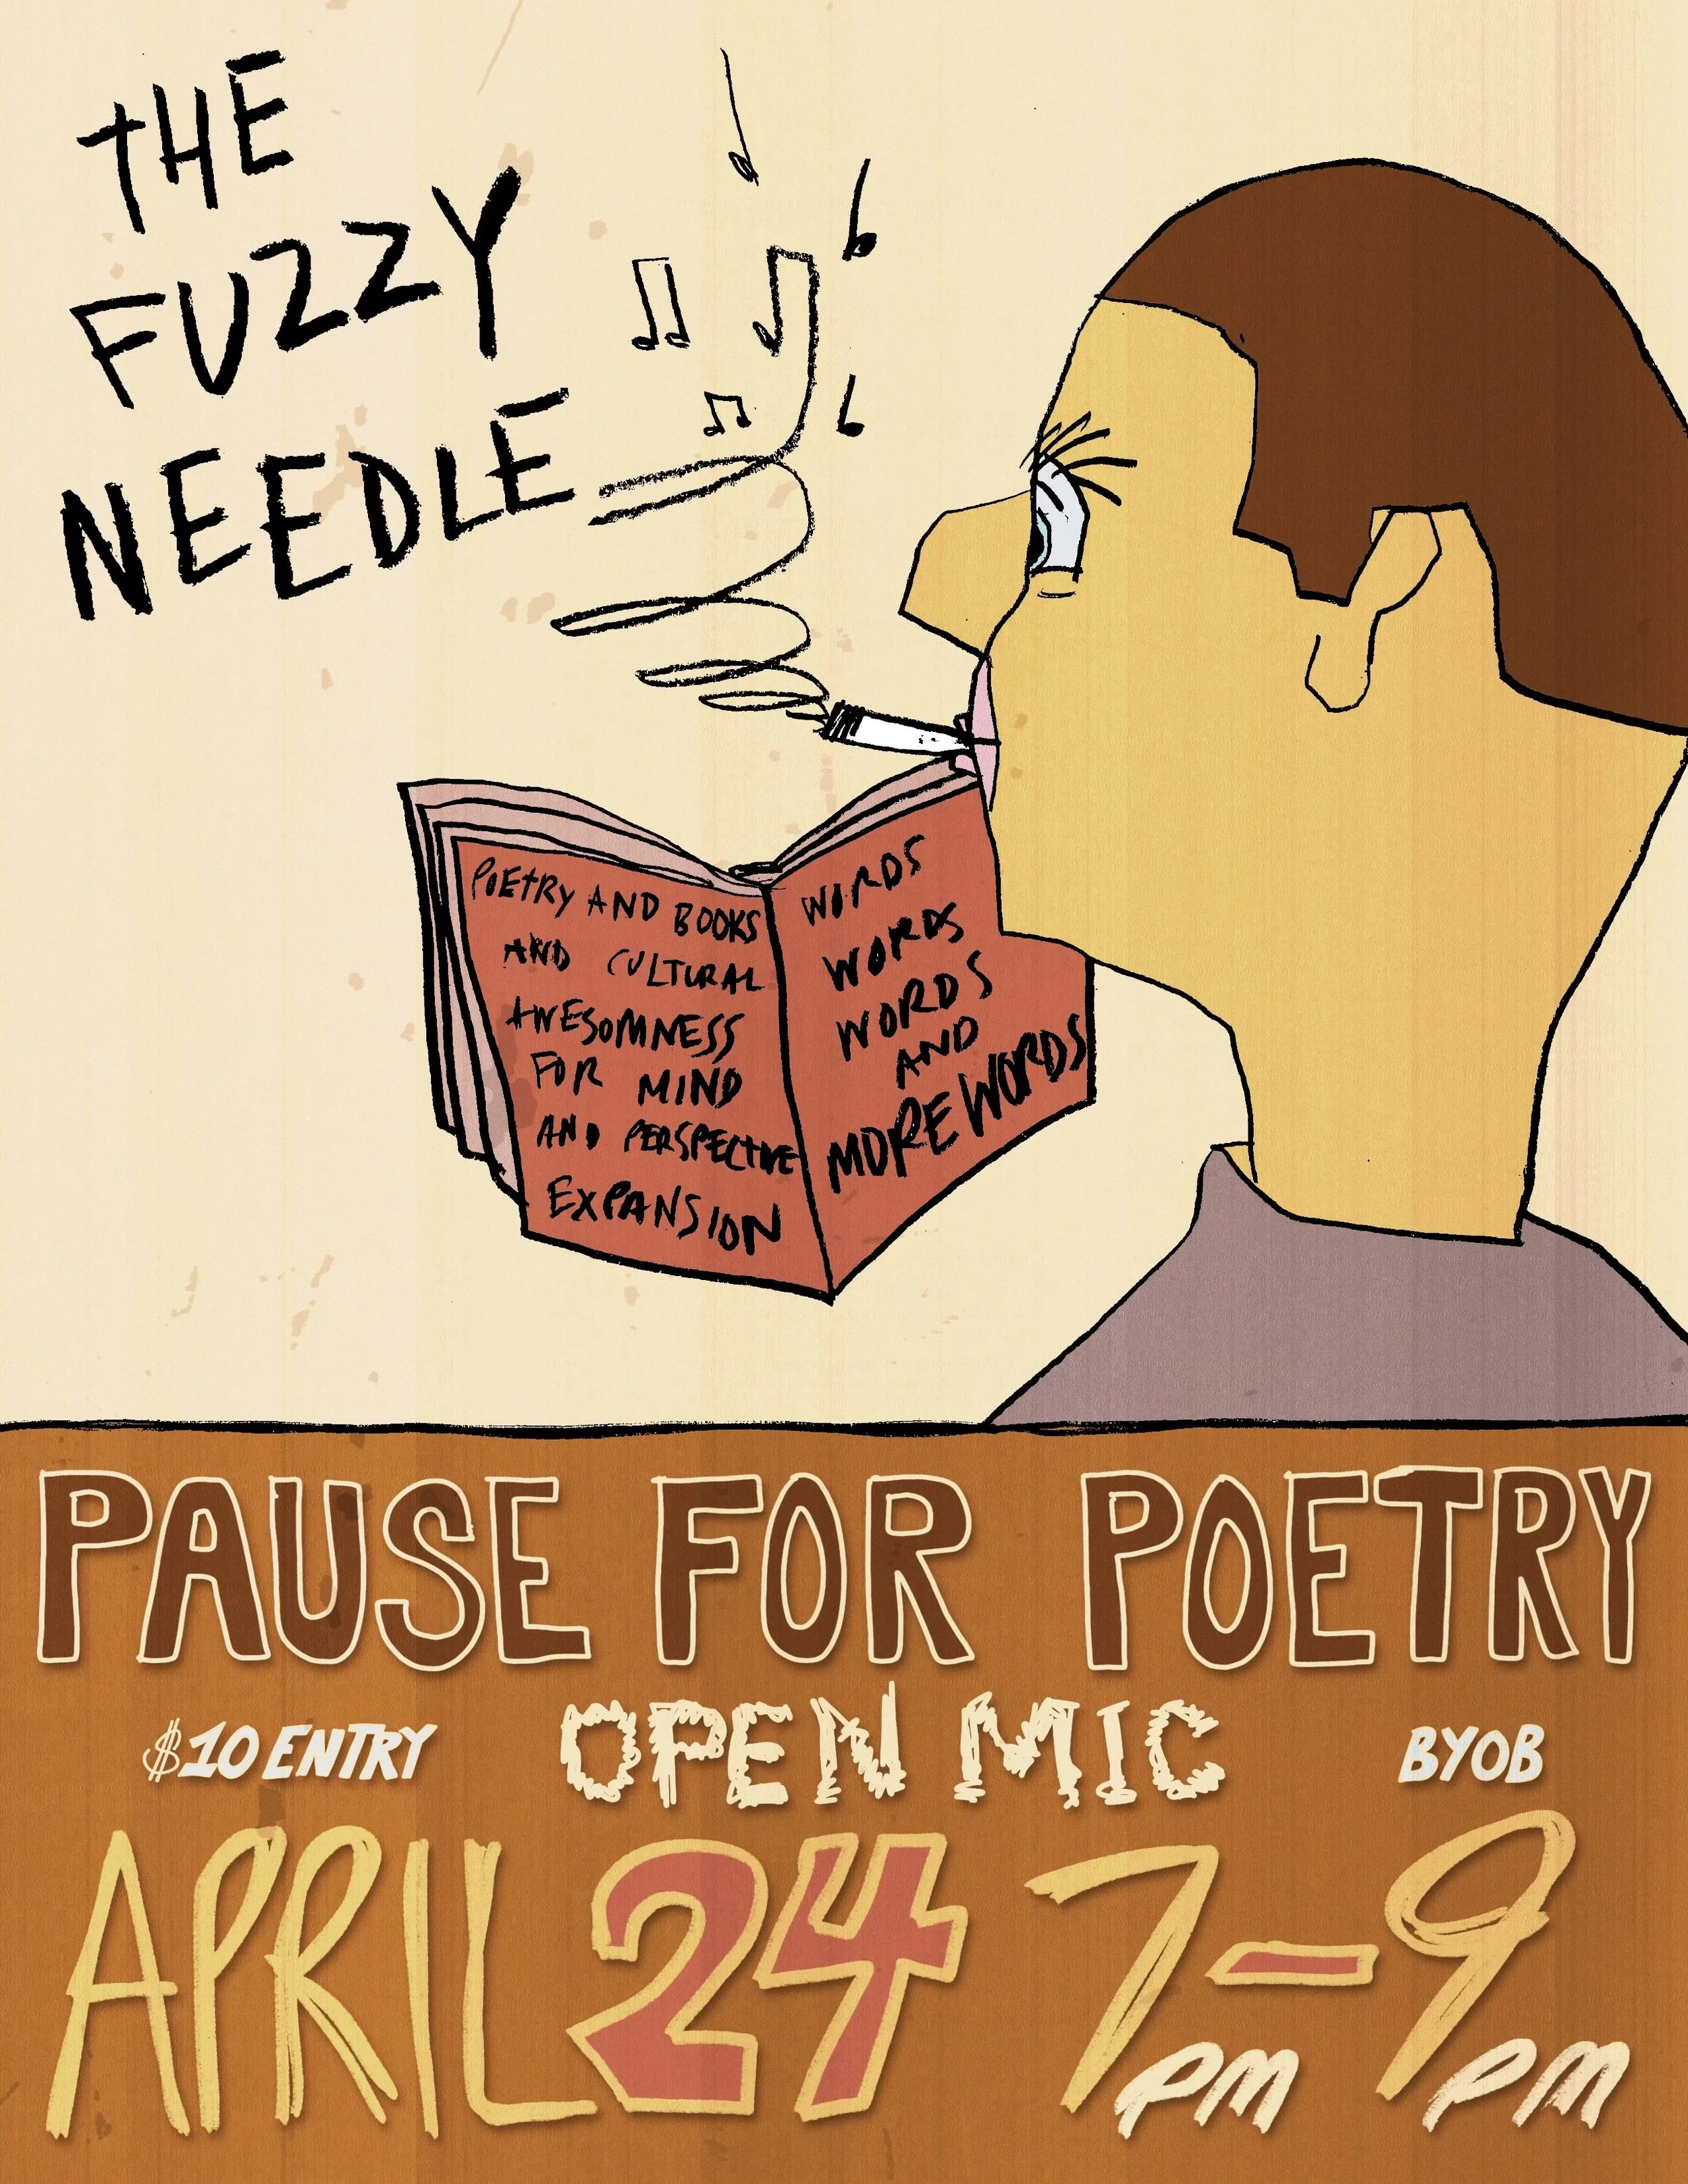 THE
FUZZY
NEEDLE
POETRY AND BOOKS
AND CULTURAL
AWESOMNESS
FOR MIND
AND PERSPECTIVE
EXPANSION
WORDS
WORDS
WORDS
AND
MORE WORDS
PAUSE FOR POETRY
$10 ENTRY
OPEN MIC
BYOB
APRIL 24 7-9
PM PM